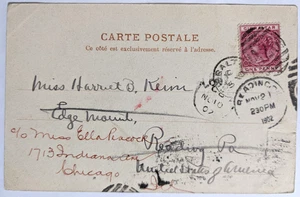 CARTE POSTALE
Ce côté est exclusivement réservé à l'adresse.
Miss Harriet B. Keim
Edge Mount,
c/o Miss Ella Peacock
Reading, Pa
1713 Indiana Ave
United States of America
Chicago
GIBRALTAR
NO 10
02
READING
NOV 21
230PM
1902